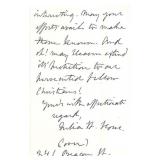 interesting. May your
efforts avail to make
them known. And
oh! may Heaven extend
its protection to our
persecuted fellow
Christians!
Yours with affectionate
regard,
Julia W. Howe.
(over)
241 Beacon St.